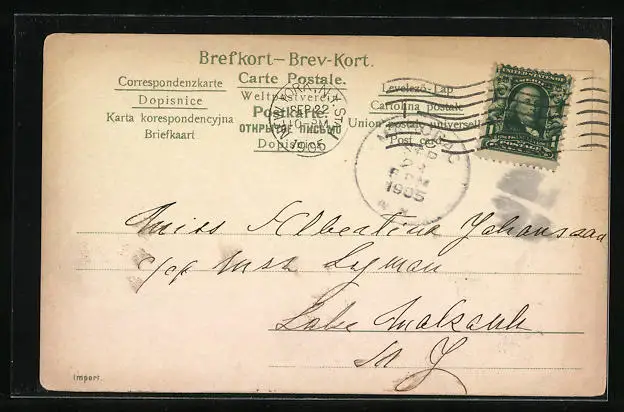 Brefkort—Brev-Kort.
Correspondenzkarte
Carte Postale.
Levelező-Lap
Dopisnice
Weltpostverein
Cartolina postale
Karta korespondencyjna
Postkarte.
Union postale universelle
Briefkaart
ОТКРЫТОЕ ПИСЬМО
Post card
Dopisnice
SEP 22
1905
1905
UNITED STATES OF
POSTAGE
Miss Albertina Johanssan
c/o Mrs Lyman
Lake
N Y
Import.